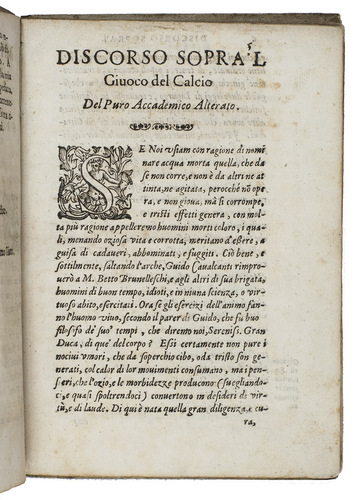 DISCORSO SOPRA'L
Giuoco del Calcio
Del Puro Accademico Alterato.
SE Noi vsiam con ragione di nomi
nare acqua morta quella, che da
se non corre, e non è da altri ne at
tinta, ne agitata, perocchè nõ ope
ra, e non gioua, mà si corrompe,
e tristi effetti genera, con mol-
ta più ragione appelleremo huomini morti coloro, i qua-
li, menando oziosa vita e corrotta, meritano d'eßere, a
guisa di cadaueri, abbominati, e fuggiti. Ciò bene, e
sottilmente, saltando l'arche, Guido Caualcanti rimpro-
uerò a M. Betto Brunelleschi, e agli altri di sua brigata,
huomini di buon tempo, idioti, e in niuna scienza, o vir-
tuoso abito, esercitati. Ora se gli esercizi dell'animo fan-
no l'huomo viuo, secondo il parer di Guido, che fu buo
filosofo de' suo' tempi, che diremo noi, Sereniss. Gran
Duca, di que' del corpo? Essi certamente non pure i
nociui vmori, che da soperchio cibo, o da tristo son ge-
nerati, col calor di lor mouimenti consumano, ma i pen-
sieri, che l'ozio, e le morbidezze producono (suegliando-
ci, e quasi spoltrendoci) conuertono in desideri di vir-
tù, e di laude. Di qui è nata quella gran diligenza, e cu-
ra,